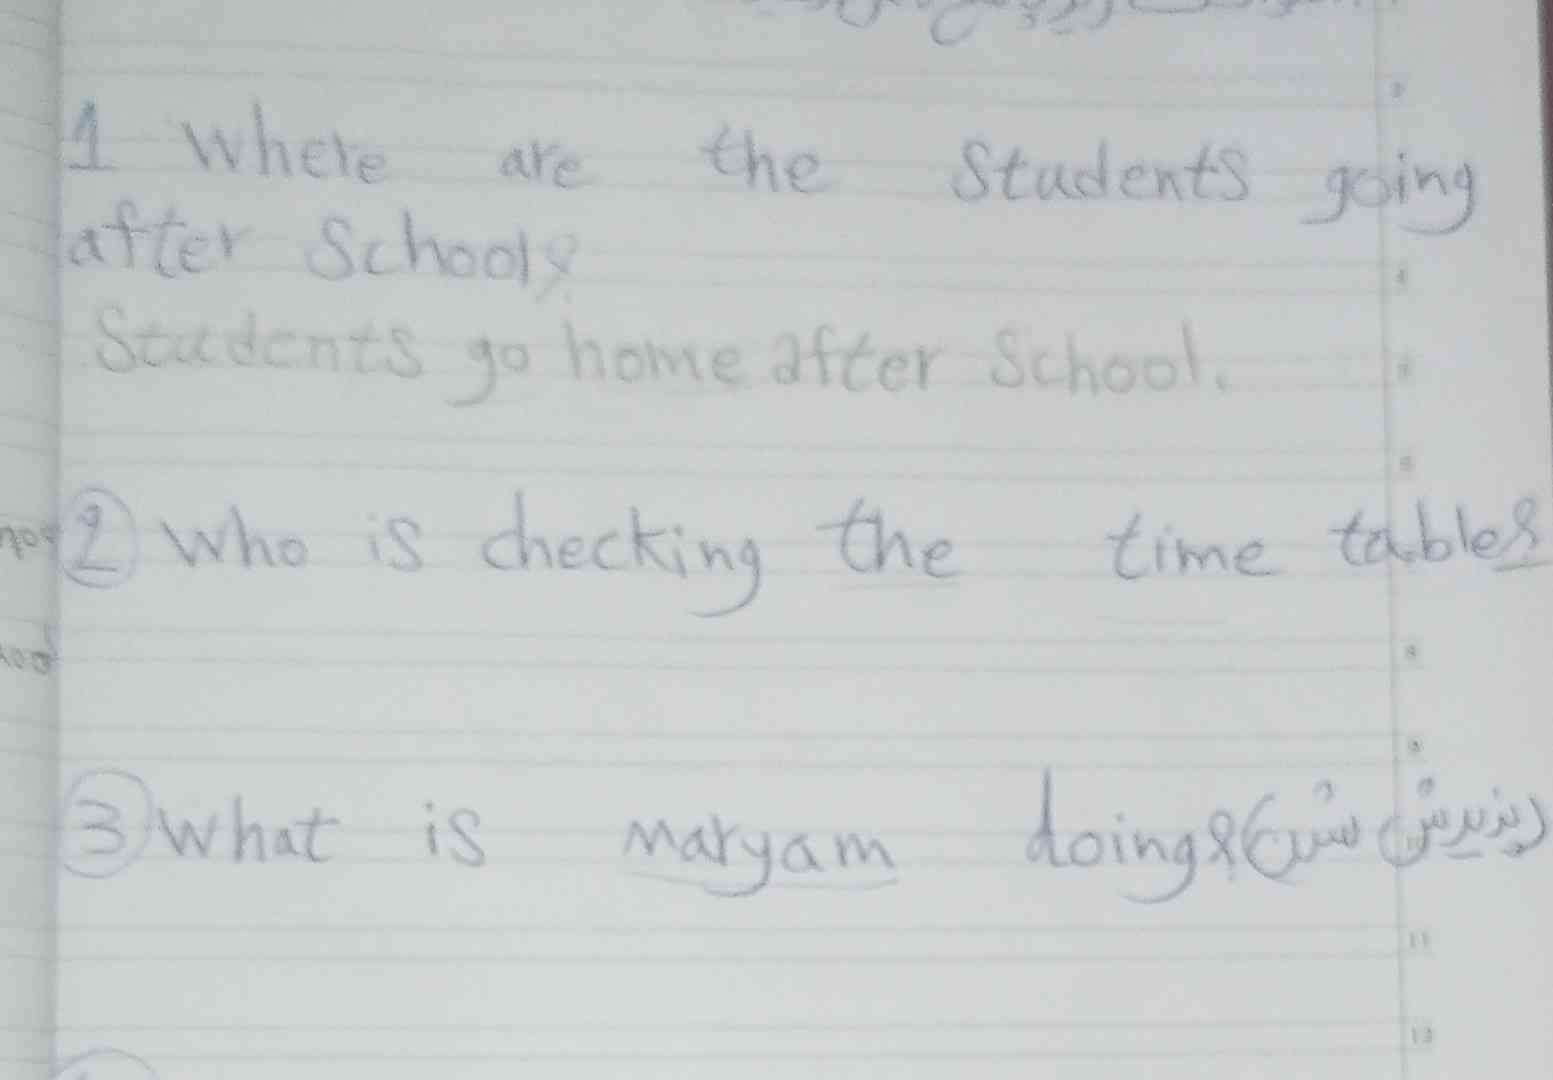 1 Where are the Students going
after School?
Students go home after School.
2 Who is checking the time table?
3 What is maryam doing?